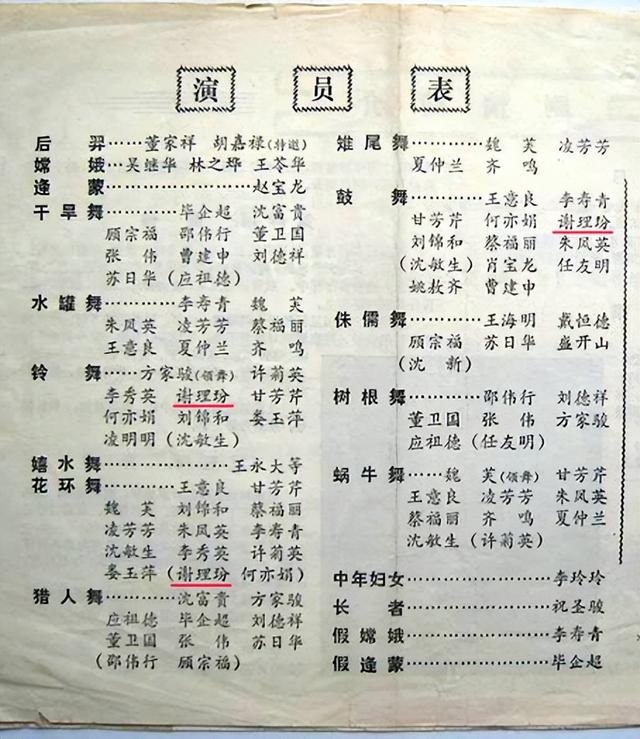 演员表
后羿……董家祥 胡嘉禄(特邀)
嫦娥…吴继华 林之烨 王苓华
逢蒙…………………赵宝龙
干旱舞…………毕企超 沈富贵
顾宗福 邵伟行 董卫国
张伟 曹建中 刘德祥
苏日华(应祖德)
水罐舞…………李寿青 魏芙
朱凤英 凌芳芳 蔡福丽
王意良 夏仲兰 齐鸣
铃舞……方家骏(领舞) 许菊英
李秀英 谢理玢 甘芳芹
何亦娟 刘锦和 娄玉萍
凌明明(沈敏生)
嬉水舞…………………王永大等
花环舞…………王意良 甘芳芹
魏芙 刘锦和 蔡福丽
凌芳芳 朱凤英 李寿青
沈敏生 李秀英 许菊英
娄玉萍(谢理玢 何亦娟)
猎人舞…………沈富贵 方家骏
应祖德 毕企超 刘德祥
董卫国 张伟 苏日华
(邵伟行 顾宗福)
雉尾舞…………魏芙 凌芳芳
夏仲兰 齐鸣
鼓舞…………王意良 李寿青
甘芳芹 何亦娟 谢理玢
刘锦和 蔡福丽 朱凤英
(沈敏生)肖宝龙 任友明
姚敖齐 曹建中
侏儒舞…………王海明 戴恒德
顾宗福 苏日华 盛开山
(沈新)
树根舞…………邵伟行 刘德祥
董卫国 张伟 方家骏
应祖德(任友明)
蜗牛舞……魏芙(领舞) 甘芳芹
王意良 凌芳芳 朱凤英
蔡福丽 齐鸣 夏仲兰
沈敏生(许菊英)
中年妇女…………………李玲玲
长者…………………祝圣骏
假嫦娥…………………李寿青
假逢蒙…………………毕企超